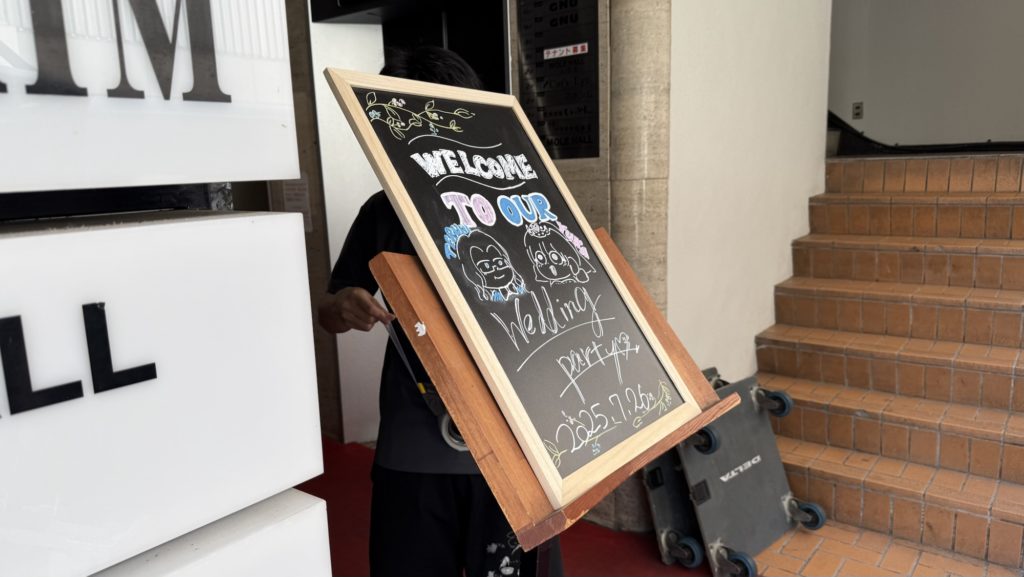 WELCOME
TO OUR
Wedding
party
2025.7.26
GNU
GNU
テナント募集
MOLE HALL
IM
LL
DELTA